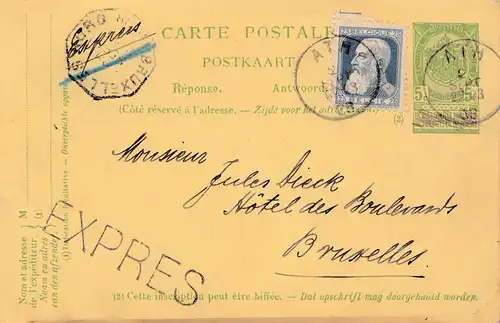 CARTE POSTALE
POSTKAART
Exprès
Réponse.
Antwoord.
(Côté réservé à l'adresse. — Zijde voor het adres
(2)
25 BELGIQUE 25
BELGIE
ATH
ATH
5
5
Monsieur
Jules Dieck
Hôtel des Boulevards
Bruxelles.
EXPRES
Nom et adresse
de l'expéditeur
Naam en adres
van den afzender
M
(1)
(1) Indication facultative. — Onverplichte opgave
(2) Cette inscription peut être biffée. — Dat opschrift mag doorgehaald worden.